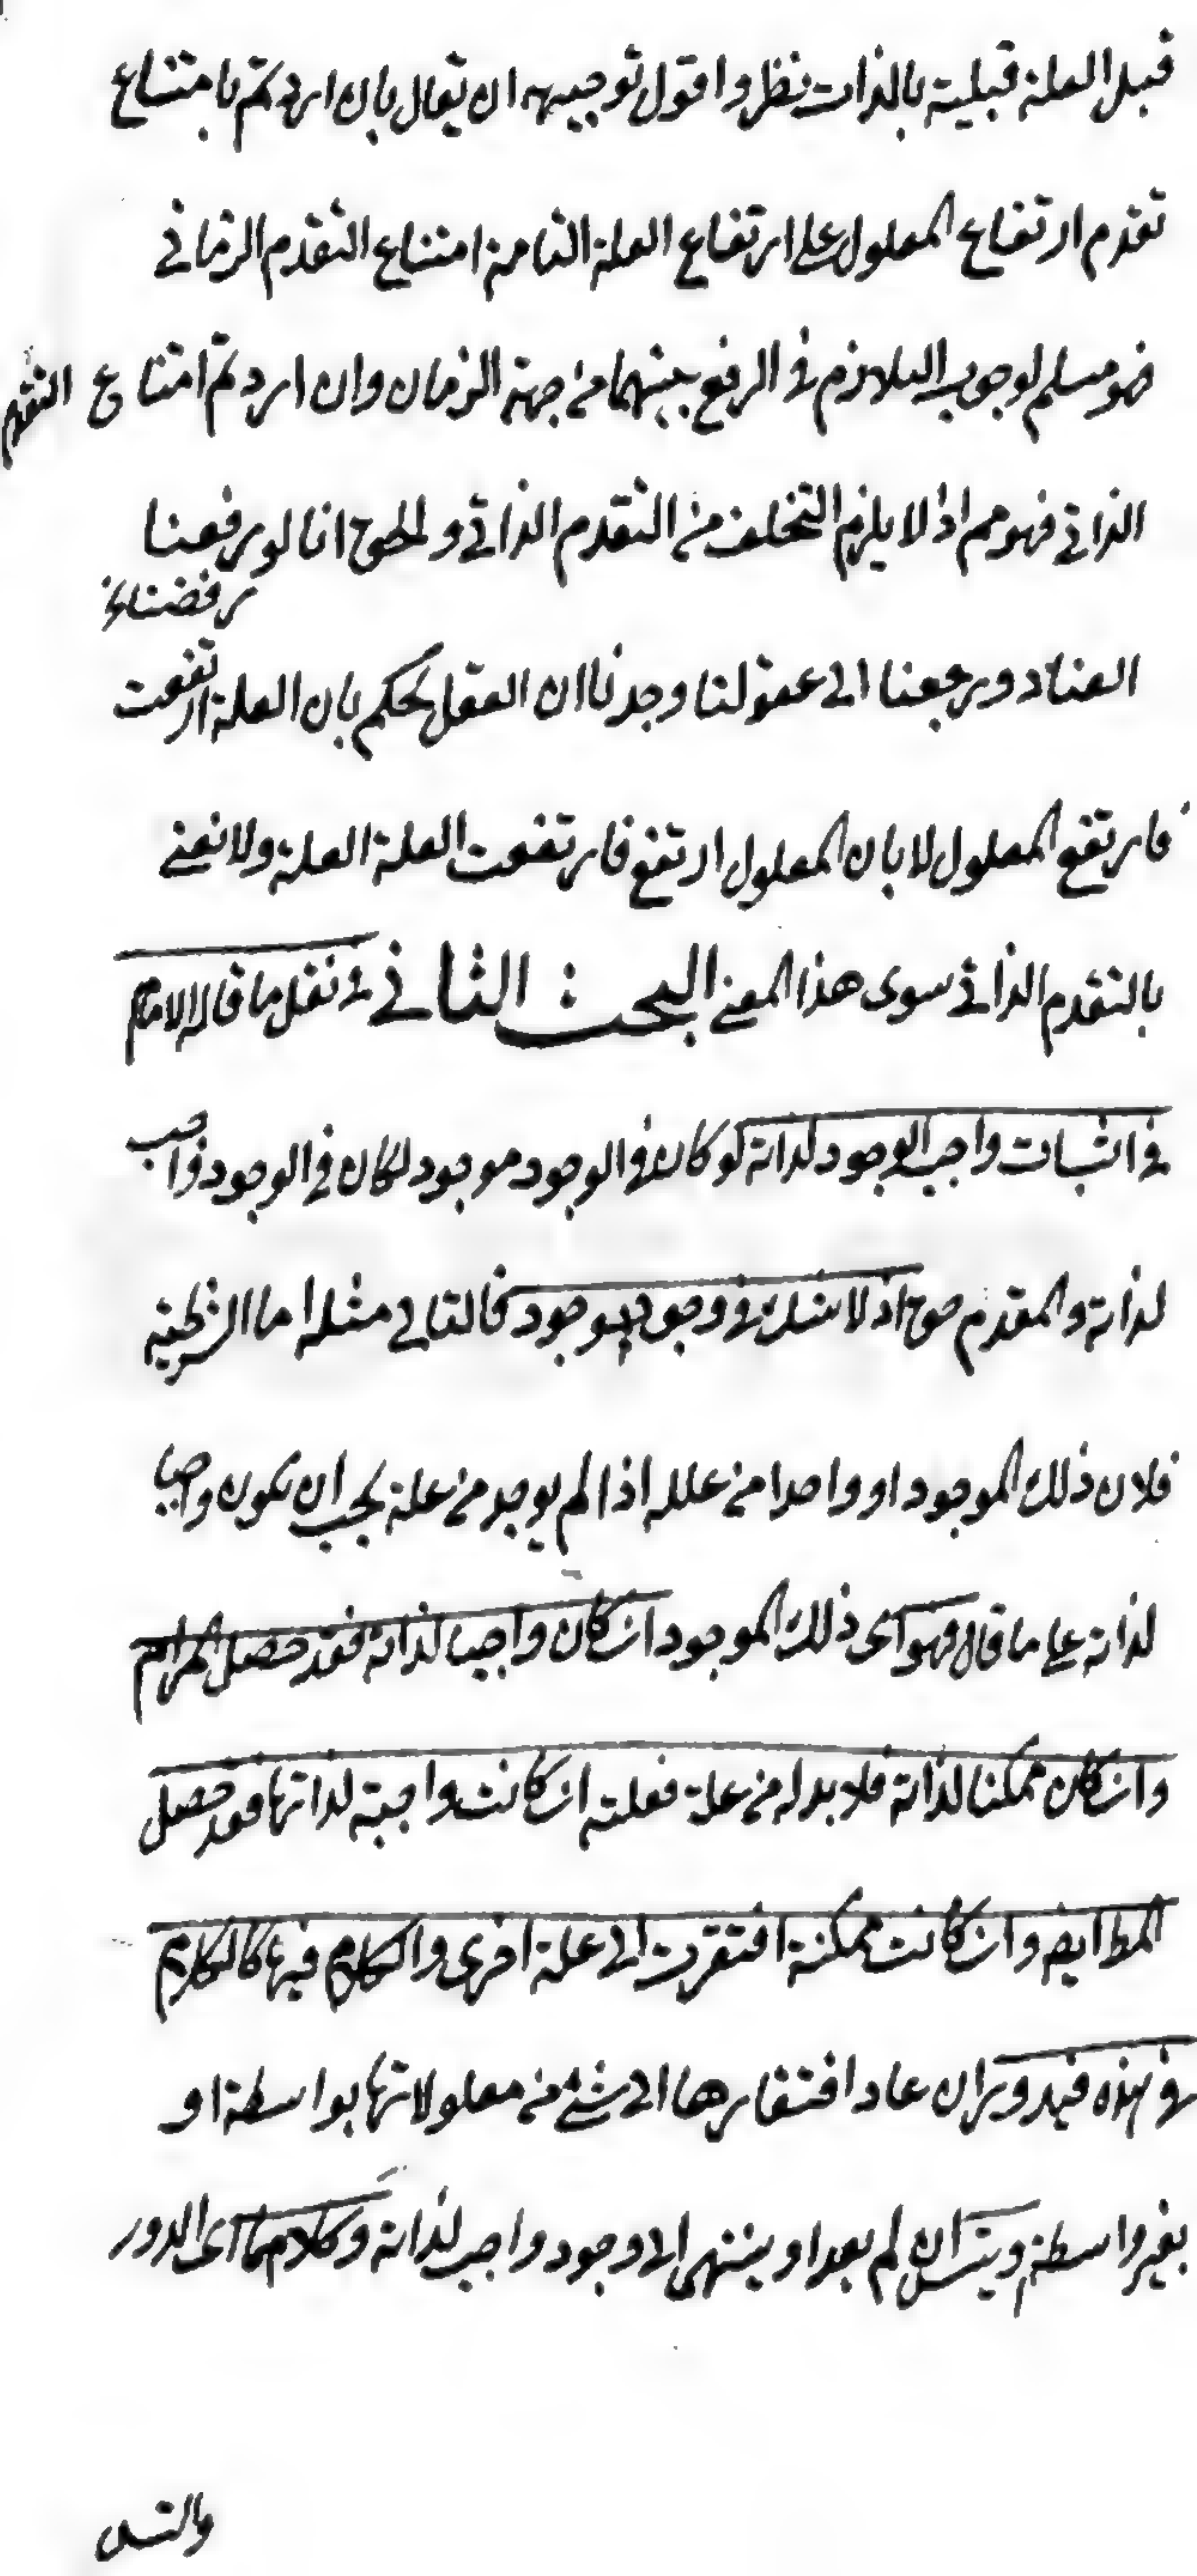 قبل العلة قبلية بالذات نظر واقول توجيهه ان يقال بان اردتم بامتناع
تقدم ارتفاع المعلول على ارتفاع العلة التامة امتناع التقدم الزماني
فهو مسلم لوجوب التلازم في الرفع بينهما من جهة الزمان وان اردتم امتناع التقدم
الذاتي فهو مم اذ لا يلزم التخلف من التقدم الذاتي و انا لو رفعنا
رفضنا
العناد ورجعنا الى عقولنا وجدنا ان العقل يحكم بان العلة ارتفعت
فارتفع المعلول لا بان المعلول ارتفع فارتفعت العلة العلة ولا نعني
بالتقدم الذاتي سوى هذا المعنى البحث الثاني في نقل ما قاله الامام
في اثبات واجب الوجود لذاته لو كان في الوجود موجود لكان في الوجود واجب
لذاته والمقدم حق اذ لا شك في وجود موجود فالتالي مثله اما الشرطية
فلان ذلك الموجود او واحدا من علله اذا لم يوجد من علة يجب ان يكون واجبا
لذاته على ما قال فهو اى ذلك الموجود ان كان واجبا لذاته فقد حصل المرام
وان كان ممكنا لذاته فلا بد له من علة فعلته ان كانت واجبة لذاتها فقد حصل
المط ايض وان كانت ممكنة افتقرت الى علة اخرى والكلام فيها كالكلام
في هذه فيدور ان عاد افتقارها الى شئ من معلولاتها بواسطة او
بغير واسطة ويتسل ان لم يعد او ينتهى الى وجود واجب لذاته وكلاهما اى الدور
والتسل